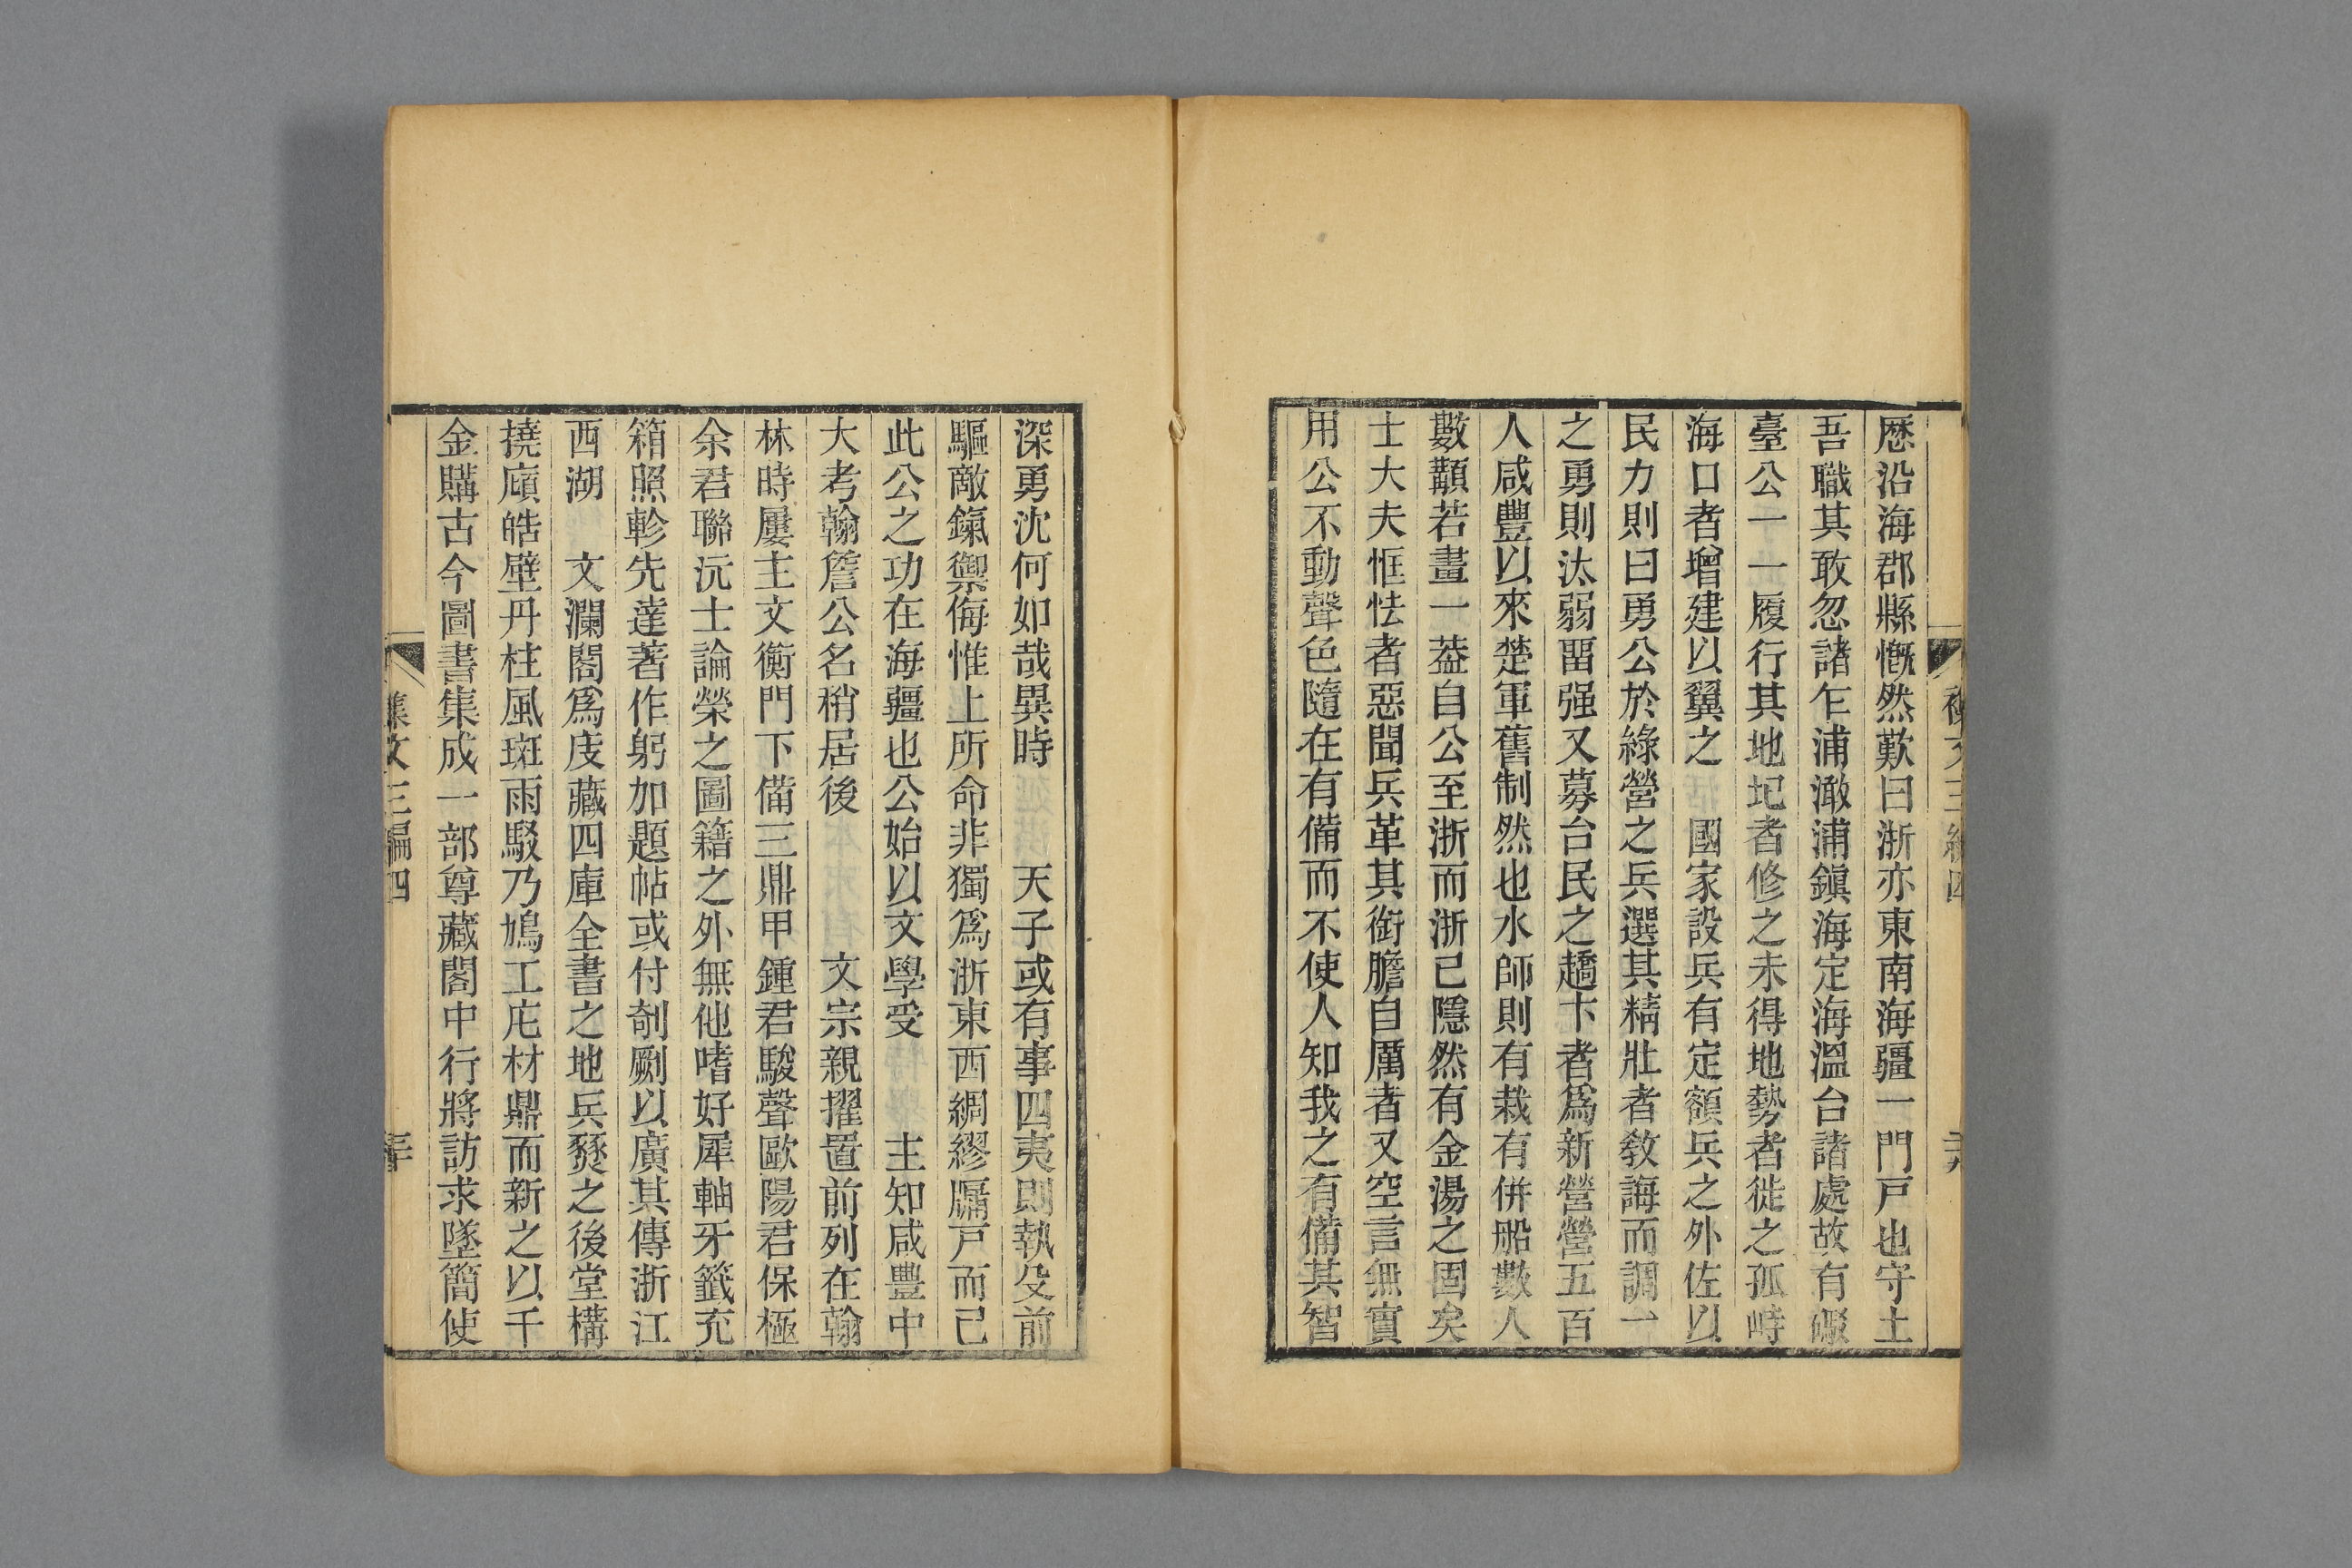 歷沿海郡縣慨然歎曰浙亦東南海疆一門戸也守土
吾職其敢忽諸乍浦澉浦鎭海定海溫台諸處故有礮
臺公一一履行其地圮者修之未得地勢者徙之孤峙
海口者增建以翼之　國家設兵有定額兵之外佐以
民力則曰勇公於綠營之兵選其精壯者敎誨而調一
之勇則汰弱畱强又募台民之趫卞者爲新營營五百
人咸豐以來楚軍舊制然也水師則有栽有併船數人
數顜若畫一葢自公至浙而浙已隱然有金湯之固矣
士大夫恇怯者惡聞兵革其銜膽自厲者又空言無實
用公不動聲色隨在有備而不使人知我之有備其智
深勇沈何如哉異時　　天子或有事四夷則執殳前
驅敵鎎禦侮惟上所命非獨爲浙東西綢繆牖戸而已
此公之功在海疆也公始以文學受　　主知咸豐中
大考翰詹公名稍居後　　　文宗親擢置前列在翰
林時屢主文衡門下備三鼎甲鍾君駿聲歐陽君保極
余君聯沅士論榮之圖籍之外無他嗜好犀軸牙籤充
箱照軫先達著作躬加題帖或付剞劂以廣其傳浙江
西湖　文瀾閣爲庋藏四庫全書之地兵燹之後堂構
撓𢊍皓壁丹柱風斑雨駁乃鳩工庀材鼎而新之以千
金購古今圖書集成一部尊藏閣中行將訪求墜簡使
集文三編四
三十